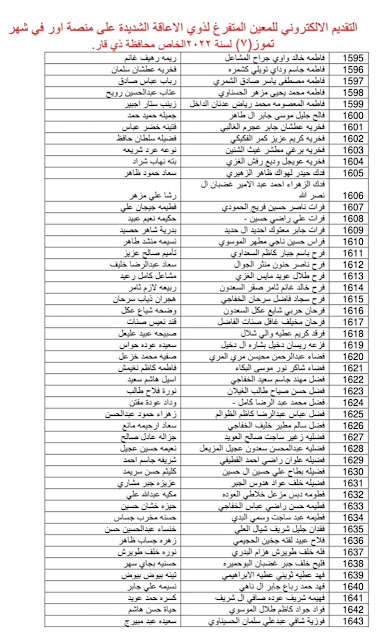 التقديم الالكتروني للمعين المتفرغ لذوي الاعاقة الشديدة على منصة اور في شهر
تموز(٧) لسنة ٢٠٢٢الخاص محافظة ذي قار.
1595 فاطمه خالد واوي جراح المشاعل ريمه رهيف غانم
1596 فاطمه جاسم وداي تويلي كشمره فخريه عطشان سلمان
1597 فاطمه مصطفى ياسر الشمري رباب عباس صادق
1598 فاطمه محمد يحيى مزهر الحسناوي عتاب عبدالحسين رويح
1599 فاطمه المعصومه محمد رياض عدنان الداخل زينب ستار اجبير
1600 فالح جليل موسى جابر ال طاهر جميله حميد حمد
1601 فخريه عطشان جابر عجرم الغالبي فتينه خضر عباس
1602 فخريه كريم عزيز كمر الفكيكي فضيله سلطان حافظ
1603 فخريه برغي مطشر غيث الشنين نوعه عرد شريعه
1604 فخريه عويجل وديع رفش الغزي بته نهاب شراد
1605 فدك حيدر لهواك ظاهر الزهيري سعاد حمود ظاهر
فدك الزهراء احمد عبد الامير غضبان ال
1606 نصر الله رشا علي مزهر
1607 فرات ناصر حسين فريح الحمودي فطيمه جيجان علي
1608 فرات علي راضي حسين - حكيمه نعيم عبيد
1609 فرات جابر معتوك احديد ال حديد بدرية شاهر حصيد
1610 فراس حسين ناجي مطهر الموسوي نسيمه منشد طاهر
1611 فرح باسم جبار كاظم السعداوي تأميم صالح عزيز
1612 فرح ناصر حنون منذر الجوال سعاد عبدالرضا خليف
1613 فرح طلال عويد مايس الغزي مشاعل كامل رعيد
1614 فرح خالد غانم ثامر صقر السعدون ربيعه لازم ثامر
1615 فرح سجاد فاضل سرحان الخفاجي هجران ذياب سرحان
1616 فرحان حربي شايع عكل السعدون وضحه شياع عكل
1617 فرحان مخيلف غافل صنات الفاضل قند نعيس صنات
1618 فرقد كريم عطيه والي شلال صبيحه عبيد عليعل
1619 فزعه ريسان دخيل بشاره ال دخيل سعيده عوده حواس
1620 فضاء عبدالرحمن محيسن مري المري صفيه محمد خزعل
1621 فضاء شاكر نور موسى البكاء فاطمه كاظم نغيمش
1622 فضل مهند جاسم سعيد الخفاجي اسيل هاشم سعيد
1623 فضل حسن صباح طالب الغيلان نورة فلاح طالب
1624 فضل محمد عبد الرضا كامل - وداد عودة مفتن
1625 فضل عباس عبدالرضا كاظم الظوالم زهراء حمود عبدالحسن
1626 فضل سالم مطير خليف الخفاجي سعاد ارحيمه مانع
1627 فضليه زغير ساجت صالح العويد جزاله عادل صالح
1628 فضليه عبدالمحسن سعدون عجيل المزيعل نعيمه حسين عجيل
1629 فضيله علوان راضي احمد القطيفي شريفه جاسم احمد
1630 فضيله بطاح علي حسين ال حسين كليثم حسن سريمد
1631 فضيله خلف عواد هدوس الجبر عزيزه جبر مشاري
1632 فطومه دبس مزعل خلاطي العوده مكيه عبدالله علي
1633 فطيمه حسن راضي عباس الخفاجي حيزه خشان حسين
1634 فطيمه عبد ساجت وسمي البدي حسنه مخرب جساس
1635 فقدان جليل شريف شيال العلي خنساء عبدالحسين حسن
1636 فلاح عبيد لفته جخين الحجيمي زهره جساب ظاهر
1637 فله خلف طويرش هزام البدري نوره خلف طويرش
1638 فليح خلف جبر غضبان البوحميره حسنيه بجاي سهر
1639 فهد عطيه ثويني عطيه الابراهيمي ثينه بيوض بيوض
1640 فهد حمد رباع جابر ال ناهي نسيمه علي جابر
1641 فهيمه شريف عوده صافي ال شريف كسره حمد عويد
1642 فواد جواد كاظم طلال الموسوي حياة حسن هاشم
1643 فوزية شافي عبدعلي سلمان الحسيناوي سعيده عبد مبيرج